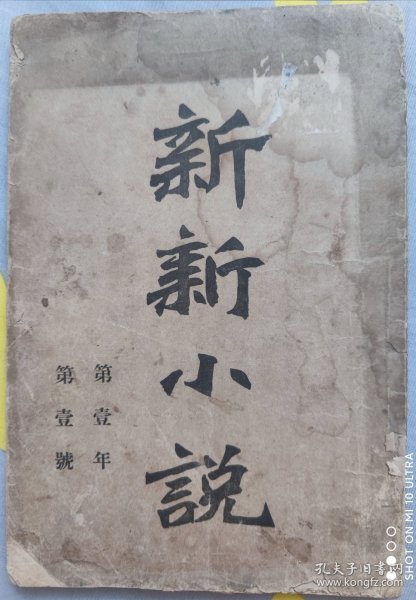 新新小說
第壹年
第壹號
SHOT ON MI 10 ULTRA
孔夫子旧书网
www.kongfz.com